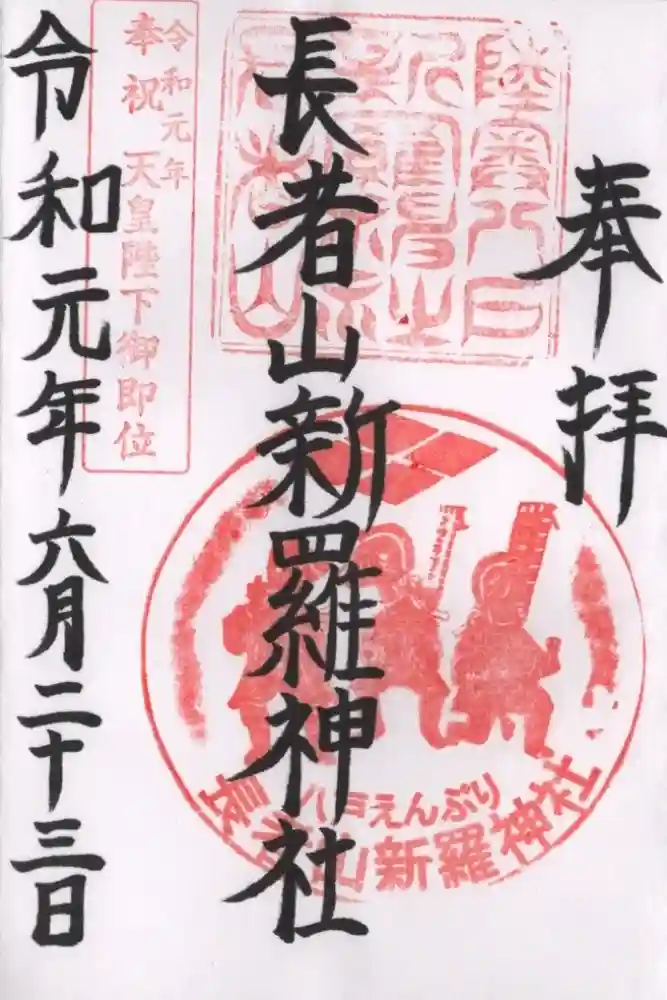 奉拝
長者山新羅神社
八戸えんぶり
長者山新羅神社
令和元年
奉祝 天皇陛下御即位
令和元年六月二十三日